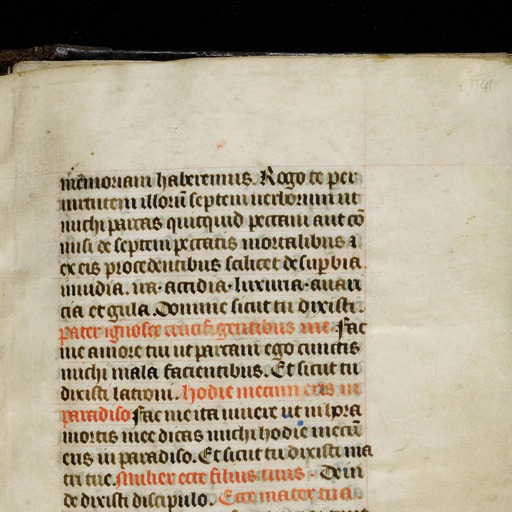 memoriam haberemus. Rogo te per
uirtutem illorū septem uerborum ut
michi parcas quitquid peccaui aut cō
misi de septem peccatis mortalibus ⁊
ex eis procedentibus scilicet de supbia
inuidia. ira. accidia. luxuria. auari
cia et gula. Domine sicut tu dixisti.
Pater ignosce crucifigentibus me. Fac
me amore tui ut parcam ego cunctis
michi mala facientibus. Et sicut tu
dixisti latroni. hodie mecum eris in
paradiso fac me ita uiuere ut in hora
mortis mee dicas michi hodie mecū
eris in paradiso. Et sicut tu dixisti ma
tri tue. Mulier ecce filius tuus. Dein
de dixisti discipulo. Ecce mater tua